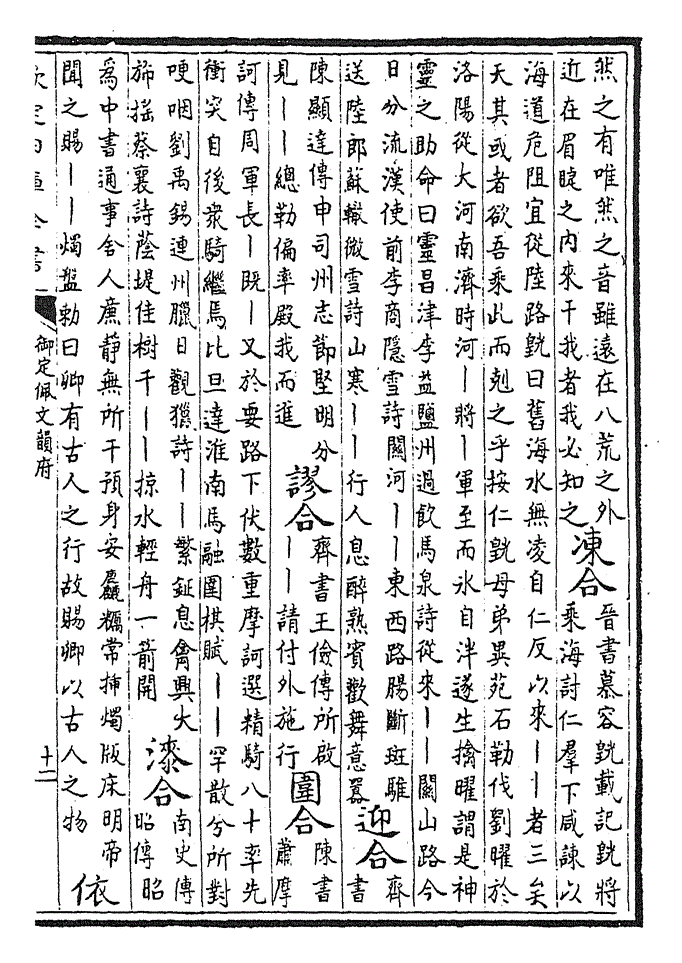 然之有唯然之音雖遠在八荒之外
近在眉睫之內來干我者我必知之
凍合
晉書慕容皝載記皝將
乘海討仁羣下咸諫以
海道危阻宜從陸路皝曰舊海水無凌自仁反以來丨丨者三矣
天其或者欲吾乘此而剋之乎按仁皝母弟異苑石勒伐劉曜於
洛陽從大河南濟時河丨將丨軍至而氷自泮遂生擒曜謂是神
靈之助命曰靈昌津李益鹽州過飲馬泉詩從來丨丨關山路今
日分流漢使前李商隱雪詩關河丨丨東西路腸斷斑騅
送陸郎蘇轍微雪詩山寒丨丨行人息醉熟賓歡舞意嚣
迎合
齊
書
陳顯達傳申司州志節堅明分
見丨丨總勒偏率殿我而進
謬合
齊書王儉傳所啟
丨丨請付外施行
圍合
陳書
蕭摩
訶傳周軍長丨既丨又於要路下伏數重摩訶選精騎八十率先
衝突自後衆騎繼焉比旦達淮南馬融圍棋賦丨丨罕散兮所對
哽咽劉禹錫連州臘日觀獵詩丨丨繁鉦息禽興大
旆搖蔡襄詩蔭堤佳樹千丨丨掠水輕舟一箭開
漆合
南史傳
昭傳昭
為中書通事舍人廉静無所干預身安麤糲常插燭版床明帝
聞之賜丨丨燭盤勅曰卿有古人之行故賜卿以古人之物
依
欽定四庫全書
御定佩文韻府
十二